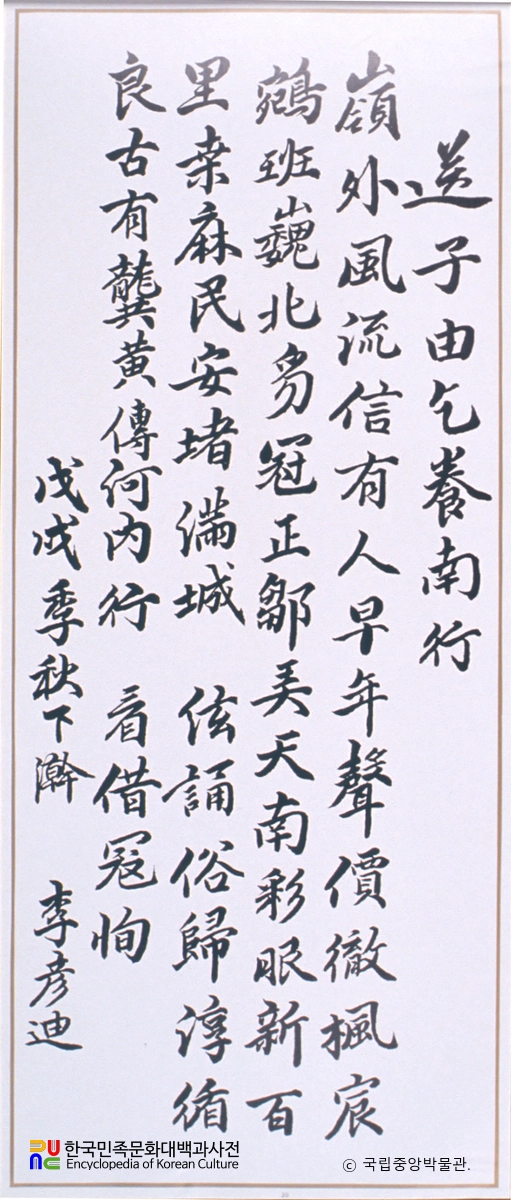 送子由乞養南行
嶺外風流信有人早年聲價徹楓宸
鵷班巍北豸冠正鄒美天南彩眼新百
里桒麻民安堵滿城 絃誦俗歸淳循
良古有龔黃傳河内行 看借冦恂
戊戌季秋下澣 李彦迪
한국민족문화대백과사전
Encyclopedia of Korean Culture
ⓒ 국립중앙박물관.